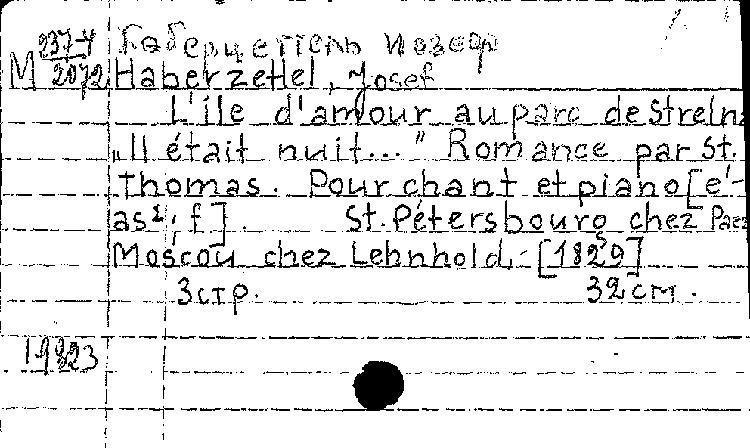 237-4 Габерцеттель Иозеф
M 2072 Haberzettel, Josef
L'île d'amour au parc de Streln
„Il était nuit..." Romance par St.
Thomas. Pour chant et piano [e'-
as²; f]. St. Pétersbourg chez Paez
Moscou chez Lehnhold. [1829]
3 стр. 32 см.
19823